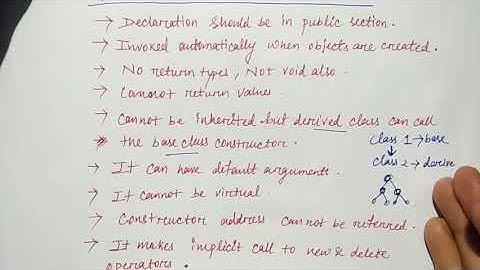 → Declaration should be in public section.
→ Invoked automatically when objects are created.
→ No return types, Not void also.
→ Cannot return values.
→ Cannot be inherited but derived class can call
the base class constructor.
Class 1 → base
Class 2 → derive
→ It can have default arguments.
→ It cannot be virtual.
→ Constructor address cannot be referred.
→ It makes implicit call to new & delete
operators.